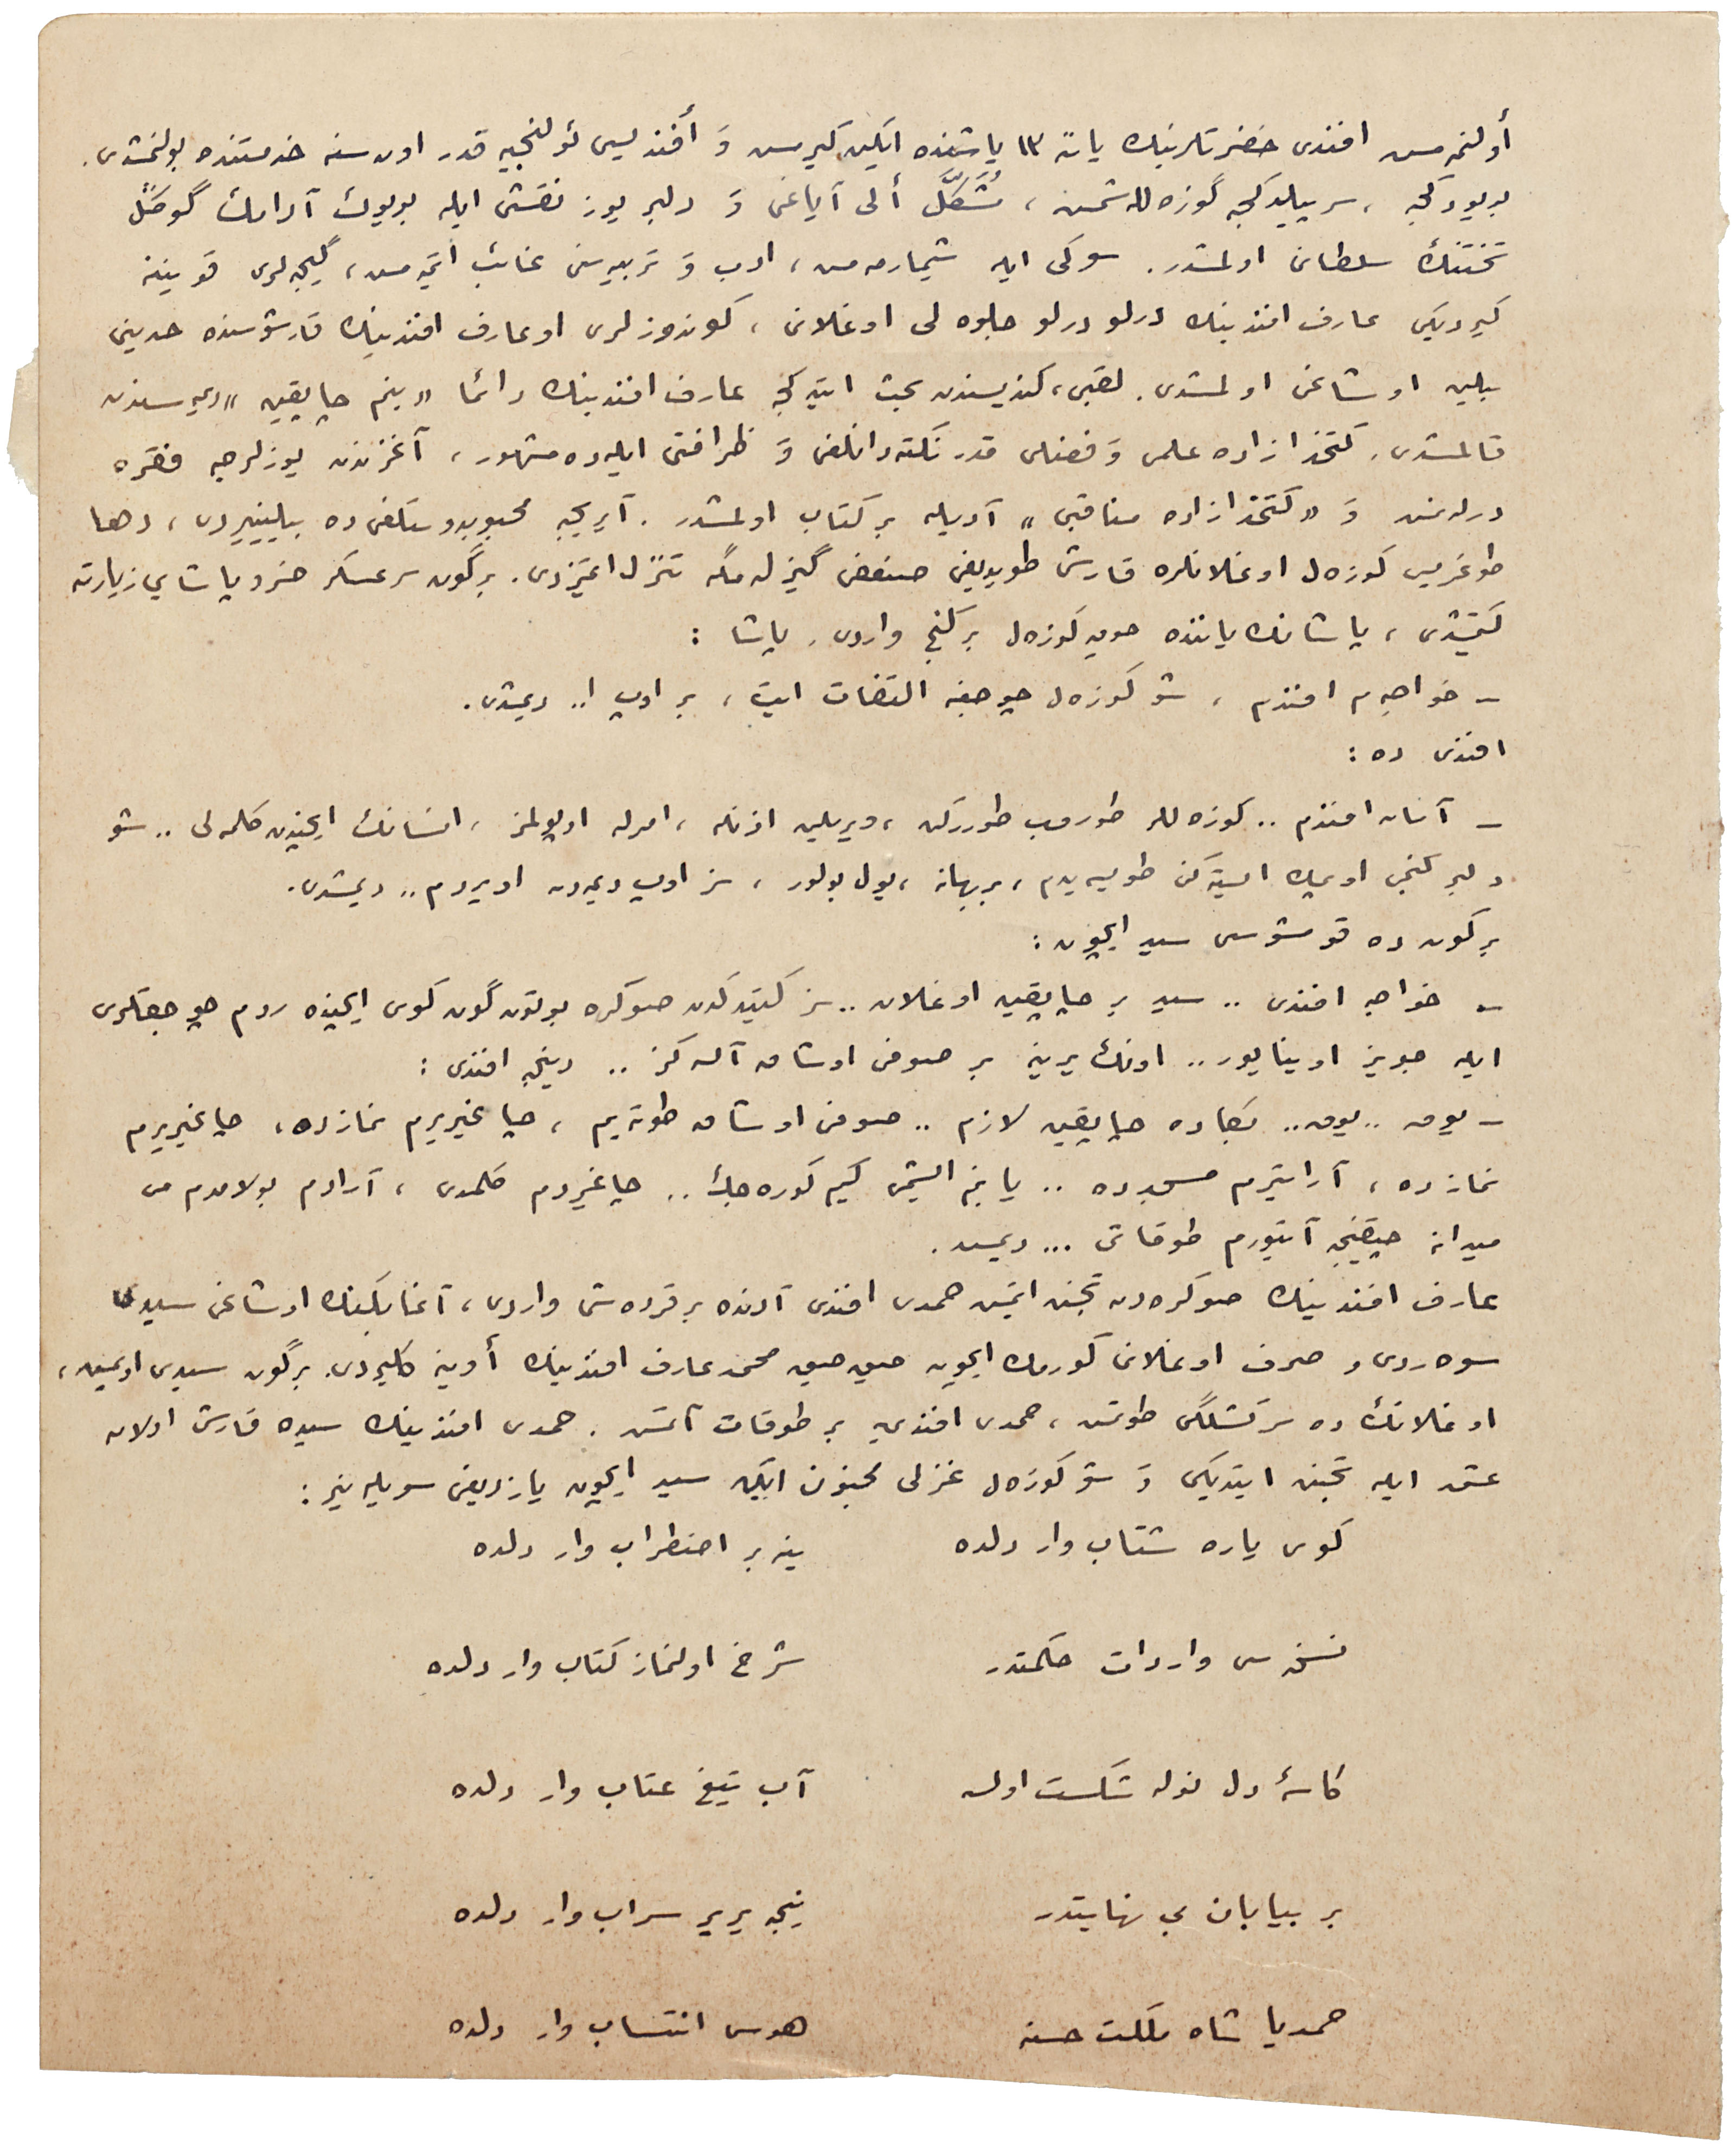 أولنمه‌مس افندی حضرتلرینك یاننه ١٣ یاشنده ایكین كیرمس وَ أفندیسی ئولنجیه قدر اون سنه خدمتنده بولنمشدی.
بویودكجه ، سرپیلدكجه گوزه‌للشمس ، مُشَكَّل ألی آیاغی وَ دلبر یوز نقشی ایله بویوك آدامك گوڭل
تختنك سلطانی اولمشدر. سوكی ایله شیمارمه‌مس ، ادب وَ تربیه‌سنی غائب ایتمه‌مس ، گیجه‌لری قوینینه
كیردیكی عارف افندینك درلو درلو جلوه‌لی اوغلانی ، كوندوزلری او عارف افندینك قارشوسنده حدینی
بیلین اوشاغی اولمشدی. لقبی ، كندیسندن بحث ایتدكجه عارف افندینك دائما «بنم چاپقین» دیمه‌سندن
قالمشدی. كتخدازاده علمی وَ فضلی قدر نكته‌دانلغی وَ ظرافتی ایله‌ده مشهور ، آغزندن یوزلرجه فقره
درلنمش وَ «كتخدازاده مناقبی» آدیله بر كتاب اولمشدر. آیریجه محبوبدوستلغی ده بیلینیردی ، دها
طوغریسی كوزه‌ل اوغلانلره قارشی طویدیغی ضعفی گیزله‌مگه تنزّل ایتمزدی. برگون سرعسكر خسرو پاشایی زیارته
كیتمشدی ، پاشانك یاننده چوق كوزه‌ل بر كنج واردی. پاشا :
ـ خواجه‌م افندم ، شو كوزه‌ل چوجغه التفات ایت ، بر اوپ !.. دیمشدی.
افندی ده :
ـ آمان افندم .. كوزه‌للر طوروب طورركن ، ویریلن اذنله ، امرله اوپولمز ، انسانك ایچندن كلمه‌لی .. شو
دلبر كنجی اوپمك ایسته‌كن طویه‌یدم ، بر بهانه ، یول بولور ، سز اوپ دیمه‌دن اوپردم .. دیمشدی.
بر كون ده قومشوسی سید ایچون :
ـ خواجه افندی .. سید بر چاپقین اوغلان .. سز كیتدكدن صوكره بوتون گون كوی ایچنده روم چوجقلری
ایله جویز اوینایور .. اونك یرینه بر صوفی اوشاق آلسه‌كز .. دینجه افندی :
ـ یوق .. یوق .. بكاده چاپقین لازم .. صوفی اوشاق طوته‌یم ، چاغیریرم نمازده ، چاغیریرم
نمازده ، آراتیرم مسجدده .. یا بنم ایشمی كیم كوره‌جك .. چاغیردم كلمدی ، آرادم بولامدم می
میدانه چیقنجه آتیورم طوقاتی ... دیمس.
عارف افندینك صوكره‌دن تجنن ایتمس حمدی افندی آدنده بر قرده‌شی واردی ، آغابكینك اوشاغی سیدی
سوه‌ردی و صرف اوغلانی كورمك ایچون صیق صیق محمد عارف افندینك أوینه كلیردی. برگون سیدی اوپمس ،
اوغلانك ده سركشلگی طوتمس ، حمدی افندی‌یه بر طوقات آتمس. حمدی افندینك سیده قارشی اولان
عشق ایله تجنن ایتدیكی وَ شو كوزه‌ل غزلی مجنون ایكن سید ایچون یازدیغی سویله‌نیر :
كوی یاره شتاب وار دلده  ینه بر اضطراب وار دلده
نسخه‌سی واردات حكمتدر  شرح اولنماز كتاب وار دلده
كاسهٔ دل نوله شكست اولسه  آب تیغ عتاب وار دلده
بر بیابان بی نهایتدر  نیجه یر یر سراب وار دلده
حمدیا شاه ملكت حسنه  هوس انتساب وار دلده